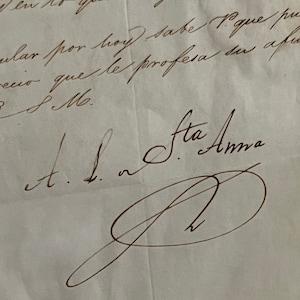 en lo que
ular por hoy sabe V. que pu
recio que le profesa su afu
S M.
A. L. de Sta Anna